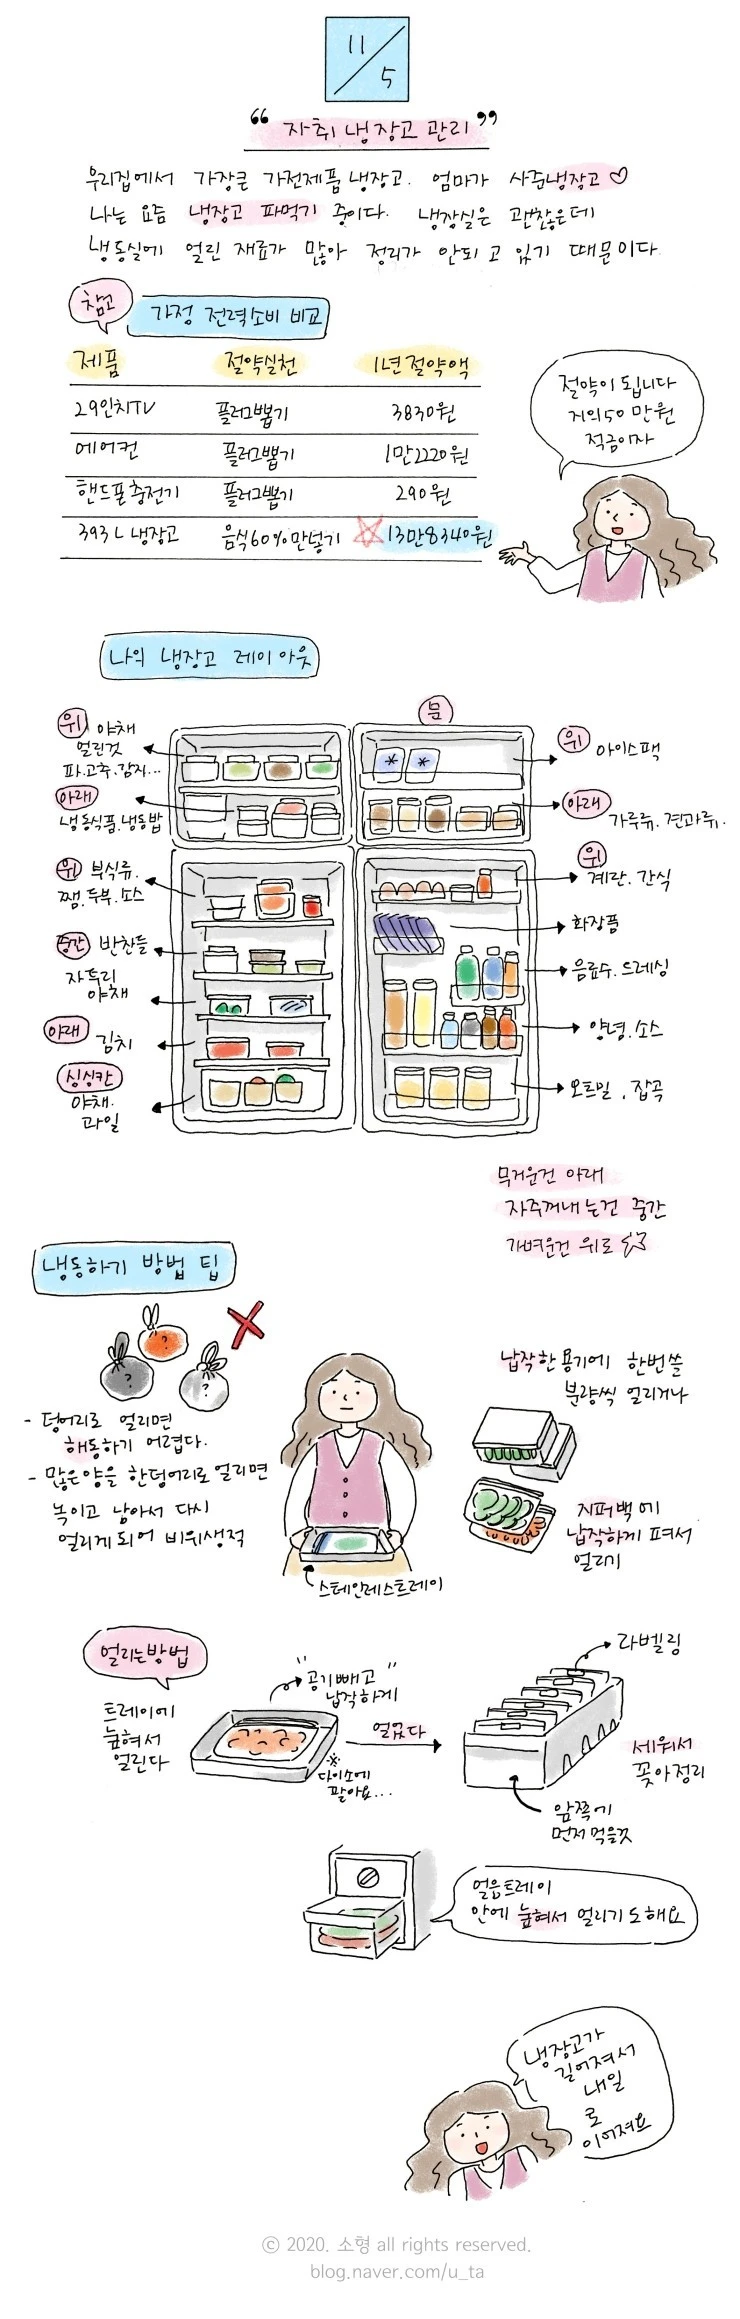 11/5
“자취 냉장고 관리”
우리집에서 가장큰 가전제품 냉장고. 엄마가 사준냉장고♡
나는 요즘 냉장고 파먹기 중이다. 냉장실은 괜찮은데
냉동실에 얼린 재료가 많아 정리가 안되고 있기 때문이다.
참고
가정 전력소비 비교
제품 절약실천 1년절약액
29인치TV 플러그뽑기 3830원
에어컨 플러그뽑기 1만2220원
핸드폰충전기 플러그뽑기 290원
393L 냉장고 음식60%만넣기 ☆13만8340원
절약이 됩니다
거의50만원
적금이자
나의 냉장고 레이아웃
문
위 야채
얼린것
파.고추.감자...
아래
냉동식품.냉동밥
위 부식류.
쨈.두부.소스
중간 반찬들
자투리
야채
아래
김치
싱싱칸
야채.
과일
위 아이스팩
아래
가루류.견과류.
위
계란.간식
화장품
음료수.드레싱
양념.소스
오트밀.잡곡
무거운건 아래
자주꺼내는건 중간
가벼운건 위로☆
냉동하기 방법 팁
? ? ?
- 덩어리로 얼리면
해동하기 어렵다.
- 많은양을 한덩어리로얼리면
녹이고 남아서 다시
얼리게되어 비위생적
스테인레스트레이
납작한용기에 한번쓸
분량씩 얼리거나
지퍼백에
납작하게 펴서
얼리기
얼리는방법
트레이에
눕혀서
얼린다
"공기빼고
납작하게"
※
다이소에
팔아요...
얼었다
라벨링
세워서
꽂아정리
앞쪽에
먼저먹을것
얼음트레이
안에 눕혀서 얼리기도해요
냉장고가
길어져서
내일
로
이어져요
ⓒ 2020. 소형 all rights reserved.
blog.naver.com/u_ta